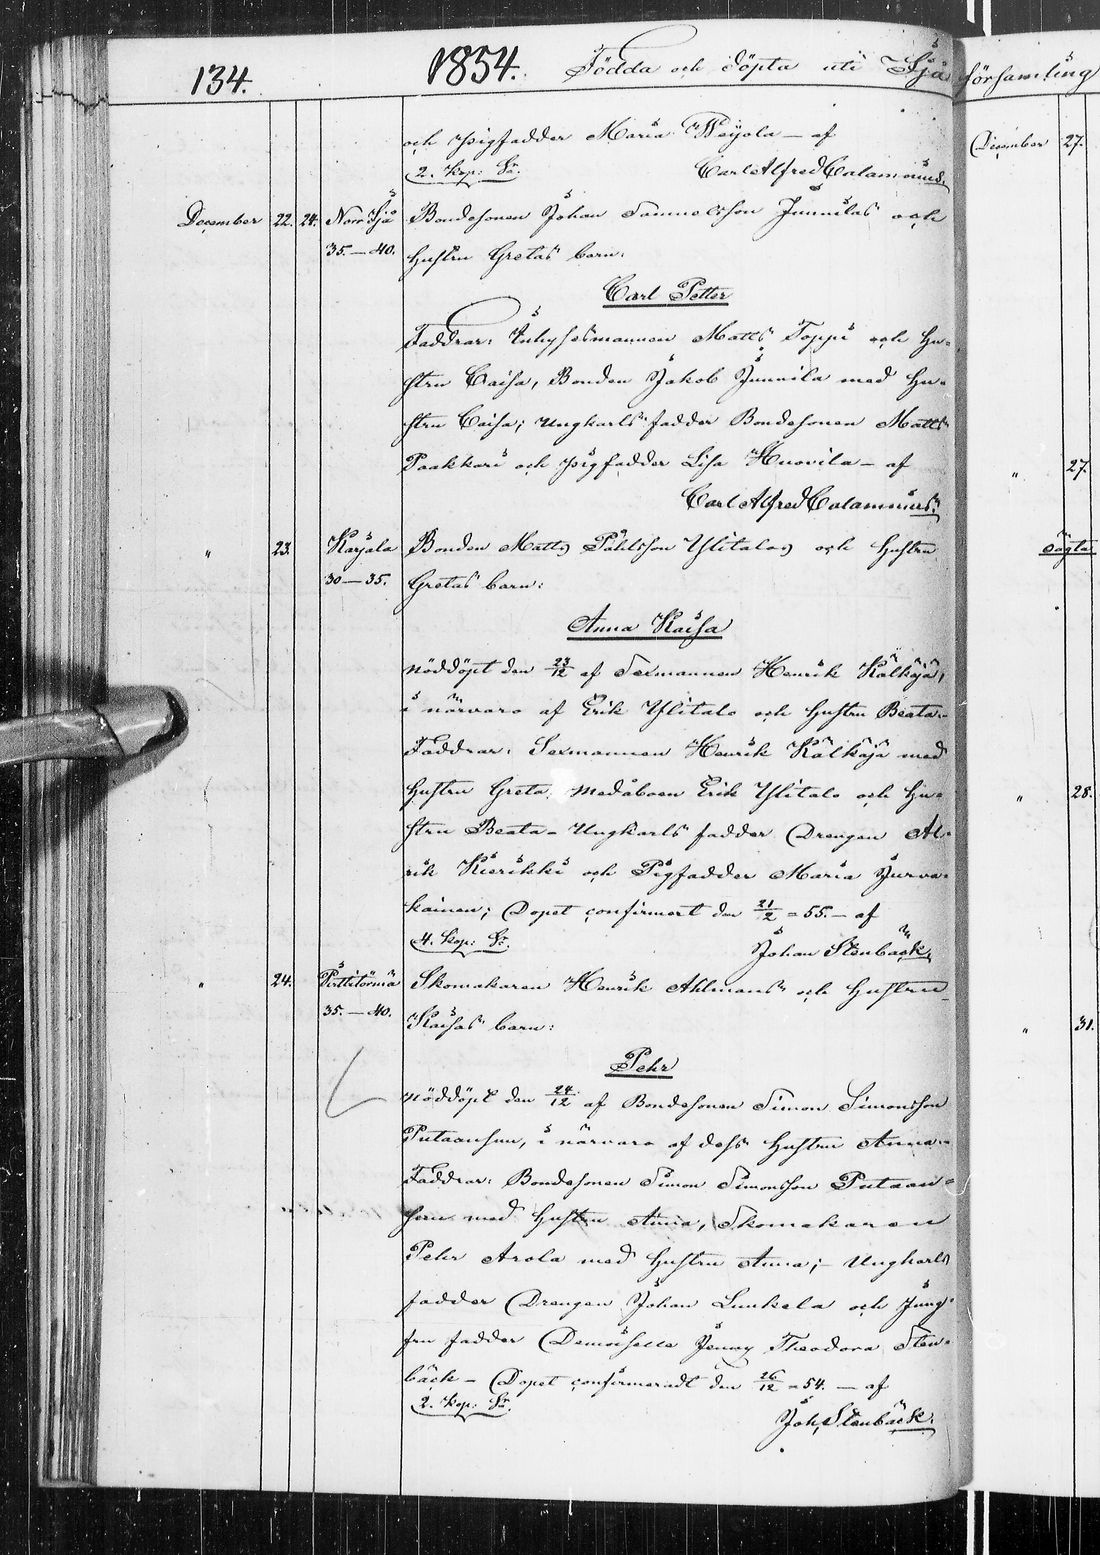 134.
1854. Födda och döpta uti Sjä
församling
och pigfadder Maria Weijola – af
2. kop: Sr.
Carl Alfred Calamnius.
December 22. 24. Norr Sjä
35.–40.
Bondesonen Johan Samuelsson Junnilas och
hustru Gretas barn:
Carl Petter
Faddrar: Inhysesmannen Matts Toppi och hu-
stru Caisa, Bonden Jakob Junnila med hu-
stru Caisa; Ungkarls fadder Bondesonen Matts
Paakkari och pigfadder Lisa Huovila – af
Carl Alfred Calamnius.
" 23. Karjala
30–35.
Bonden Matts Påhlsson Ylitalos och hustru
Gretas barn:
Anna Kaisa
nöddöpt den 23/12 af Sexmannen Henrik Kälkäjä,
i närvaro af Erik Ylitalo och hustru Beata.-
Faddrar: Sexmannen Henrik Kälkäjä med
hustru Greta, medåboen Erik Ylitalo och hu-
stru Beata – Ungkarls fadder Drengen Al-
rik Kierikki och Pigfadder Maria Jurva-
kainen; Dopet confirmert den 21/2 = 55. – af
4. kop: Sr.
Johan Stenbäck.
" 24. Pirttitörmä
35.–40.
Skomakaren Henrik Ahlmans och hustru
Kaisas barn:
Pehr
nöddöpt den 24/12 af Bondesonen Simon Simonsson
Putaansuu, i närvaro af dess hustru Anna.-
Faddrar: Bondesonen Simon Simonsson Putaan-
suu med hustru Anna, Skomakaren
Pehr Arola med hustru Anna; – Ungkarls
fadder Drengen Johan Lunkela och Jung-
fru fadder Demoiselle Jenny Theodora Sten-
bäck – Dopet confirmeradt den 26/12 = 54. – af
2. kop: Sr.
Joh. Stenbäck.
December 27.
" 27.
" 28.
" 31.